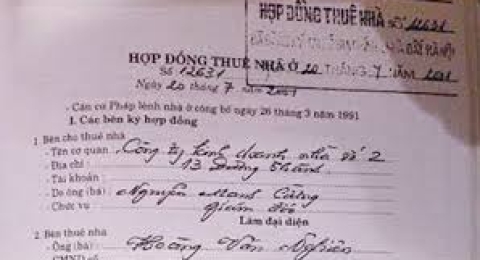 HỢP ĐỒNG THUÊ NHÀ Số 12631
NHÀ ĐẤT HÀ NỘI
20 THÁNG 7 NĂM 2001
HỢP ĐỒNG THUÊ NHÀ Ở
Số 12631
Ngày 20 tháng 7 năm 2001
- Căn cứ Pháp lệnh nhà ở công bố ngày 26 tháng 3 năm 1991
I. Các bên ký hợp đồng
1. Bên cho thuê nhà
- Tên cơ quan : Công ty kinh doanh nhà số 2
- Địa chỉ : 13 Đường Thành
- Tài khoản :
- Do ông (bà) : Nguyễn Mạnh Cường
- Chức vụ : Giám đốc
Làm đại diện
2. Bên thuê nhà
- Ông (bà) : Hoàng Văn Nghiên
- CMND số